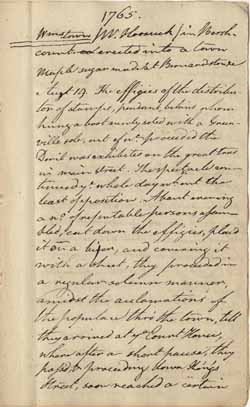 1765.
Wmstown [W. Hoosuck] in Berksh.
county erected into a town
Maple sugar made at Bernardstown
Aug. 14. The effigies of the distribu-
tor of stamps, pendant, behind whom
hung a boot newly soled with a Gren-
ville sole, out of wh. proceeded the
Devil was exhibited on the great tree
in main street. The spectacle con-
tinued ye whole day without the
least opposition. About evening
a no. of reputable persons assem-
bled, cut down the effigies, placed
it on a bier, and covering it
with a sheet, they proceeded in
a regular solemn manner,
amidst the acclamations of
the populace thro the town, till
they arrived at ye Court House,
where after a short pause, they
passed & proceeding down Kings
Street, soon reached a certain